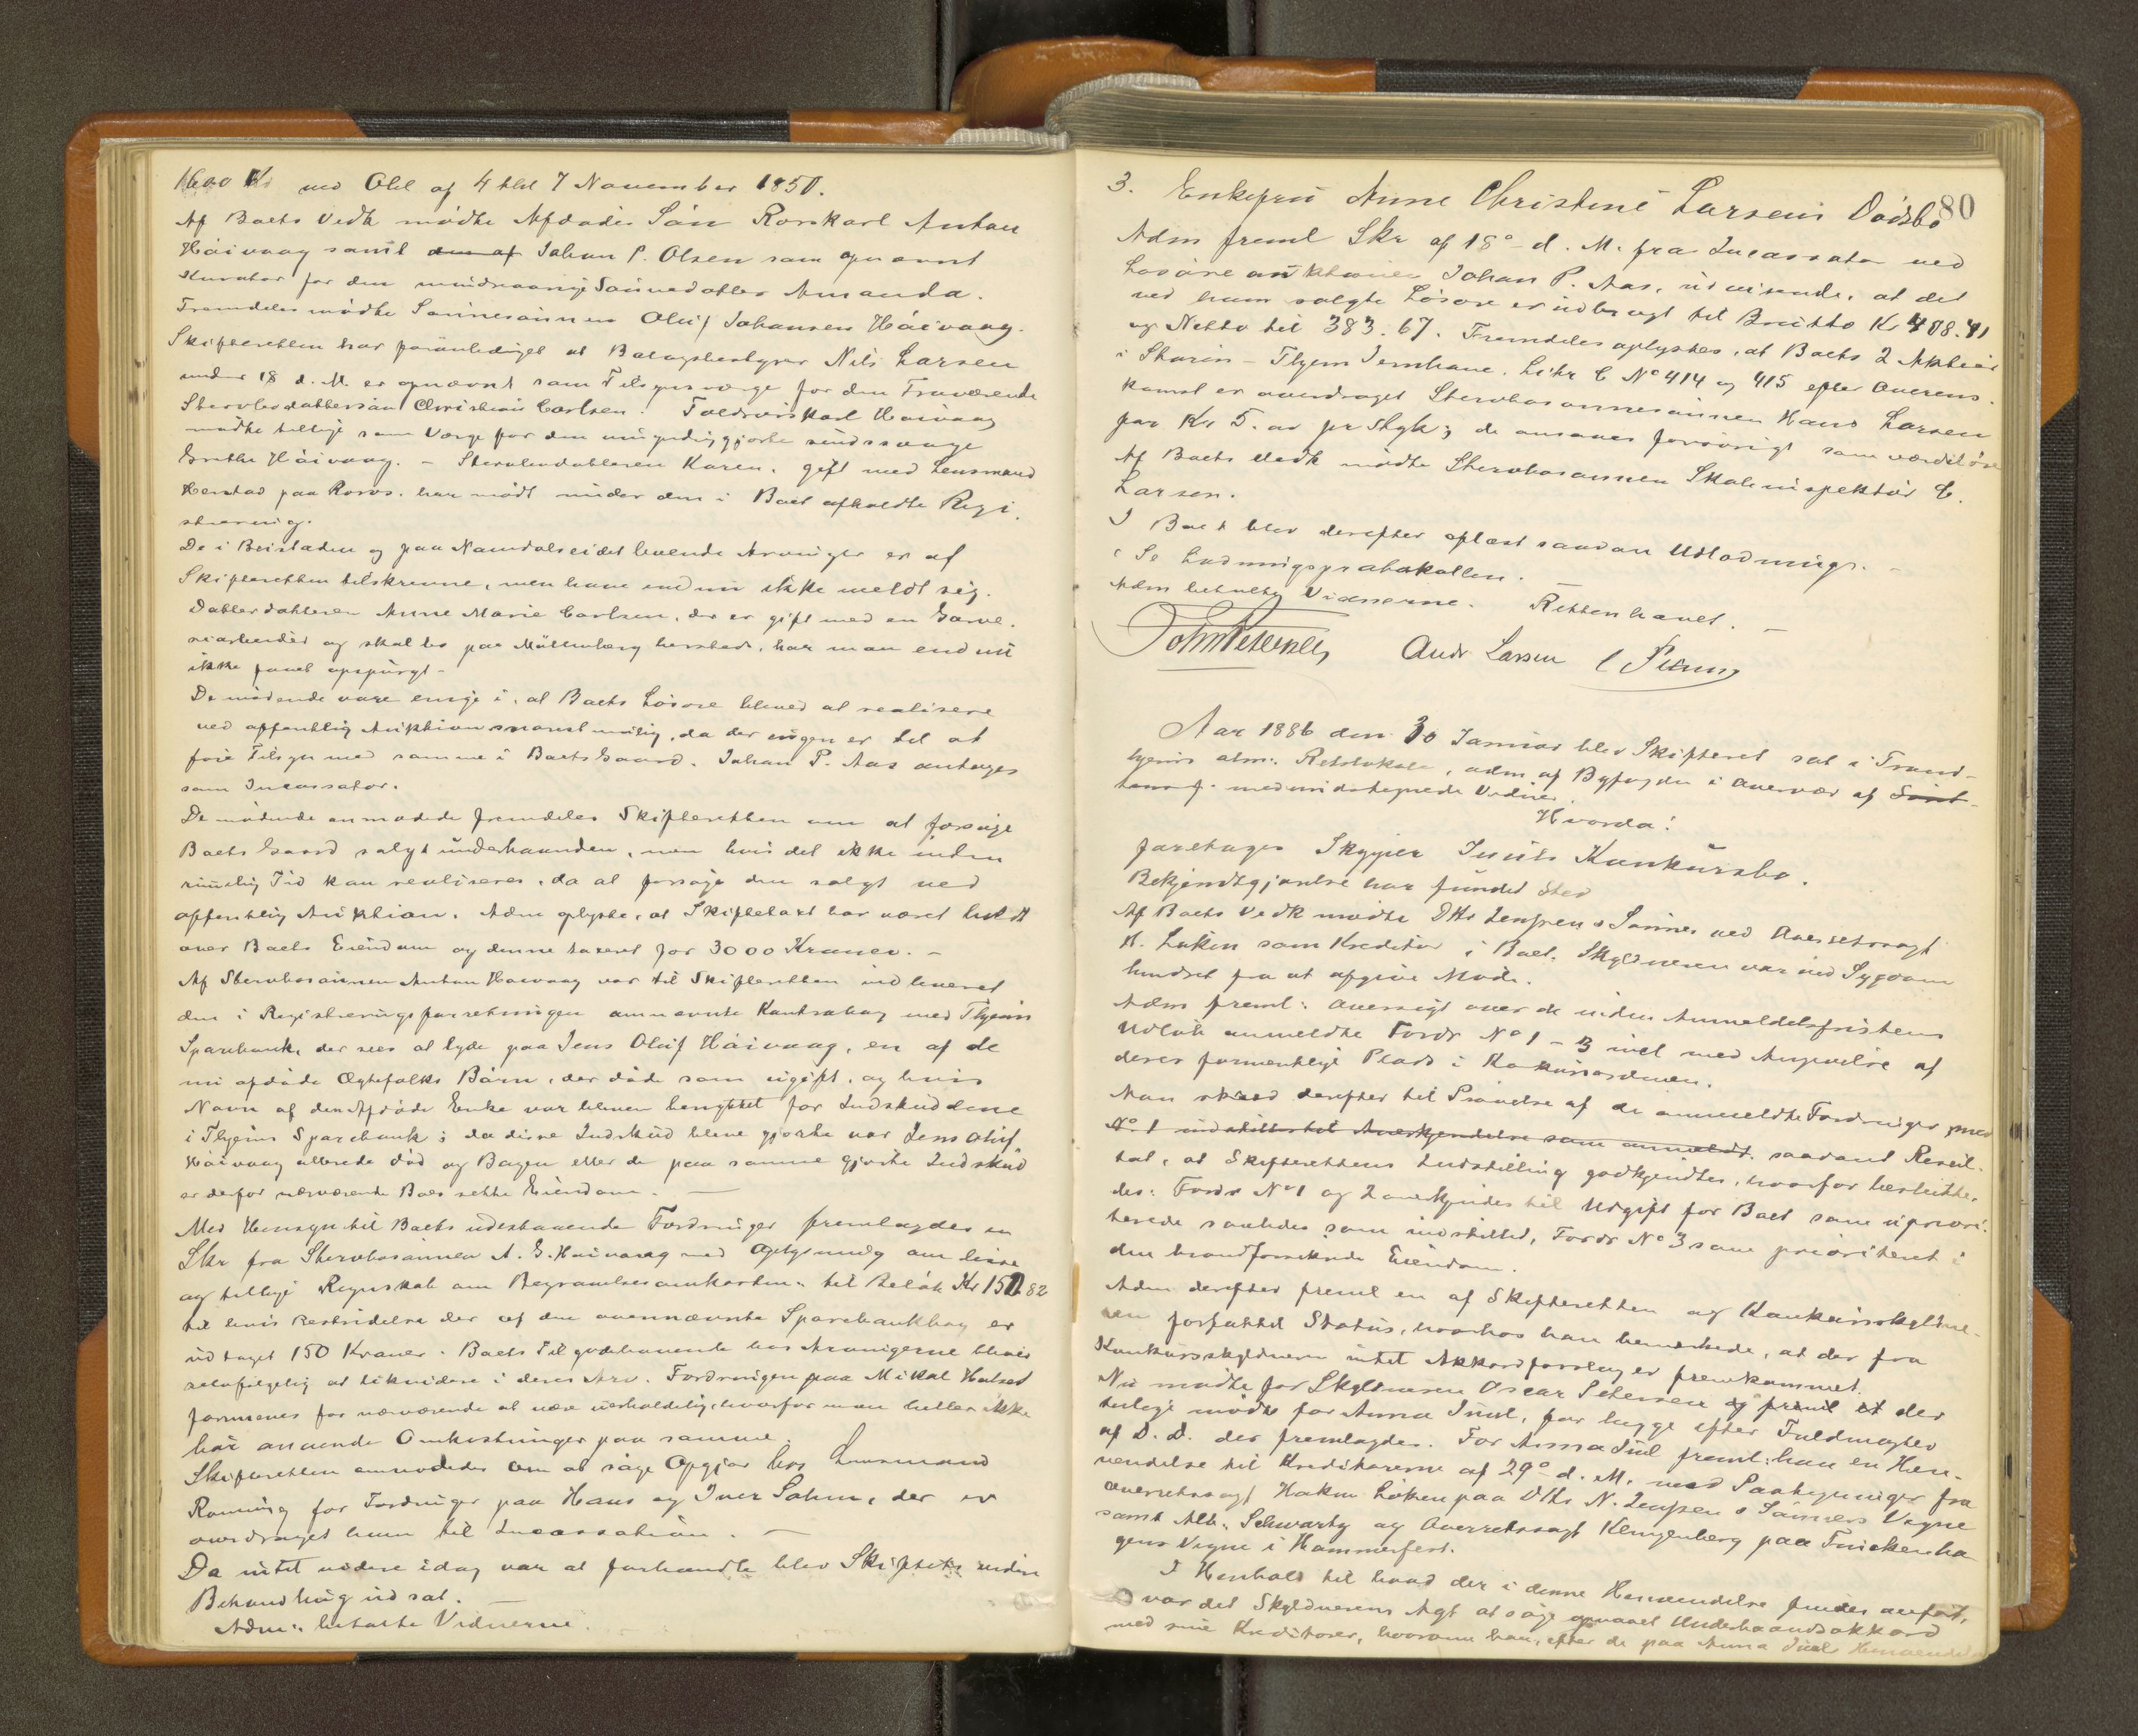 1600 Kr med Obl af 4 tbl 7 November 1850.
Af Boets Vedk mødte Afdødes Søn Rorskarl Anton
Håivaag samt den af Johan P. Olsen som opnævnt
Kurator for den mindreaarige Sønnedatter Amanda.
Fremdeles mødte Sønnesønnen Oluf Johansen Håivaag.
Skifteretten har foranlediget at Bolagsbestyrer Nils Larsen
under 18 d. M. er opnævnt som Tilsynsværge for den Fraværende
Stervbodattersøn Christian Carlsen. Toldrorskarl Haivaag
mødte tillige som Værge for den umyndiggjorte sindssvage
Grethe Håivaag. - Stervbodatteren Karen, gift med Lensmand
Herstad paa Roros. har mødt under den i Boet afholdte Regi-
strering.
De i Beistaden og paa Namdalseidet boende Arvinger er af
Skifteretten tilskrevne, men have endnu ikke meldt sig.
Datterdatteren Anne Marie Carlsen, der er gift med en Garve-
riarbeider og skal bo paa Møllenberg hersteds, har man endnu
ikke faaet opspurgt -
De mødende vare enige i, at Boets Løsøre bliver at realisere
ved offentlig Auktion snarest mulig, da der ingen er til at
føre Tilsyn med samme i Boets Gaard. Johan P. Aas antages
som Incassator.
De mødende anmodede fremdeles Skifteretten om at forsøge
Boets Gaard solgt underhaanden, men hvis det ikke inden
rimelig Tid kan realiseres, da at forsøge den solgt ved
offentlig Auktion. Adm oplyste, at Skiftetaxt har været holdt
over Boets Eiendom og denne taxeret for 3000 Kroner. -
Af Stervbosønnen Anton Haivaag var til Skifteretten indleveret
den i Registreringsforretningen omnævnte Kontrabog med Thjems
Sparebank, der sees at lyde paa Jens Oluf Håivaag, en af de
nu afdøde Ægtefolks Børn, der døde som ugift, og hvis
Navn af den Afdøde Enke var bleven benyttet for Indskuddene
i Thjems Sparebank; da disse Indskud bleve gjorte var Jens Oluf
Håivaag allerede død og Bogen eller de paa samme gjorte Indskud
er derfor nærværende Boes rette Eiendom. -
Med Hensyn til Boets udestaaende Fordringer fremlagdes en
Skr fra Stervbosønnen A. G. Haivaag med Oplysning om disse
og tillige Regnskab om Begravelsesomkostn: til Beløb Kr 151.82
til hvis Bestridelse der af den ovennævnte Sparebankbog er
udtaget 150 Kroner. Boets Tilgodehavende hos Arvingerne bliver
selvfølgelig at likvidere i deres Arv. Fordringen paa Mikal Halset
formenes for nærværende at være uerholdelig, hvorfor man heller ikke
bør anvende Omkostninger paa samme.
Skifteretten anmodedes om at søge Opgjør hos Lensmand
Roming for Fordringer paa Hans og Iver Sohm, der er
overdraget ham til Incassation. -
Da intet videre idag var at forhandle blev Skiftets videre
Behandling udsat.
Adm: betalte Vidnerne.
80
3. Enkefru Anne Christine Larsens Dødsbo
Adm freml Skr af 18de d. M. fra Incassator ved
Løsøreauktionen Johan P. Aas, udvisende, at det
ved ham solgte Løsøre er udbragt til Brutto Kr 408.41
og Netto til 383.67. Fremdeles oplystes, at Boets 2 Aktier
i Størin - Thjem Jernbane. Litr C No 414 og 415 efter Overens-
komst er overdraget Stervbosønnesønnen Hans Larsen
for Kr 5.00 pr Styk; de ansaaes forøvrigt som værdiløse
Af Boets Vedk mødte Stervbosønnen Skoleinspektør C.
Larsen.
I Boet blev derefter oplæst saadan Udlodnings. -
( Se Lodningsprotokollen.
Adm betalte Vidnerne. Retten hævet. -
Andr Larsen
Aar 1886 den 30 Januar blev Skifteret sat i Trond-
hjems alm: Retslokale, adm af Byfogden i Overvær af
medundertegnede Vidner
Hvorda:
foretoges Skypper Juuls Konkursbo.
Bekjendtgjørelse har fundet Sted
Af Boets Vedk mødte DHr Jenssen & Sønner ved Oversetssagf
H. Løken som Kreditor i Boet. Skyldneren var ved Sygdom
hindret fra at afgive Møde.
Adm freml: Oversigt over de inden Anmeldelsfristens
Udløb anmeldte Fordr No 1 - 3 incl med Angivelse af
deres formentlige Plads i Konkursordnen.
Man skred derefter til Prøvelse af de anmeldte Fordringer med
No 1 indstilles til Anerkjendelse som anmeldt. saadant Resul-
tat, at Skifterettens Indstilling godkjendtes, hvorfor besluttedes
des: Fordr No 1 og 2 anerkjendes til Udgift for Boet som uprivi-
terede saaledes som indstillet, Fordr No 3 som prioriteret i
den brandforsikrede Eiendom.
Adm derefter freml en af Skifteretten og Konkursskyldne-
ren forfattet Status, hvorhos han bemærkede, at der fra
Konkursskyldneren intet Akkordforslag er fremkommet.
Nu mødte for Skyldneren Oscar Petersen og freml et der
tillige mødte for Anna Juul, for begge efter Fuldmagter
af D. D. der fremlagdes. For Anna Juul freml: han en Hen-
vendelse til Kreditorerne af 29de d. M. med Paategninger fra
Overretssagf Hakon Løken paa DHr N. Jenssen & Sønners Vegne
samt Alb. Schwartz og Overretssagf Klingenberg paa Finckenha-
gens Vegne i Hammerfest.
I Henhold til hvad der i denne Henvendelse findes anført,
var det Skyldnerens Agt at søge opnaaet Underhaandsakkord
med sine Kreditorer, hvorom han, efter de paa Anna Juuls Henvendelse